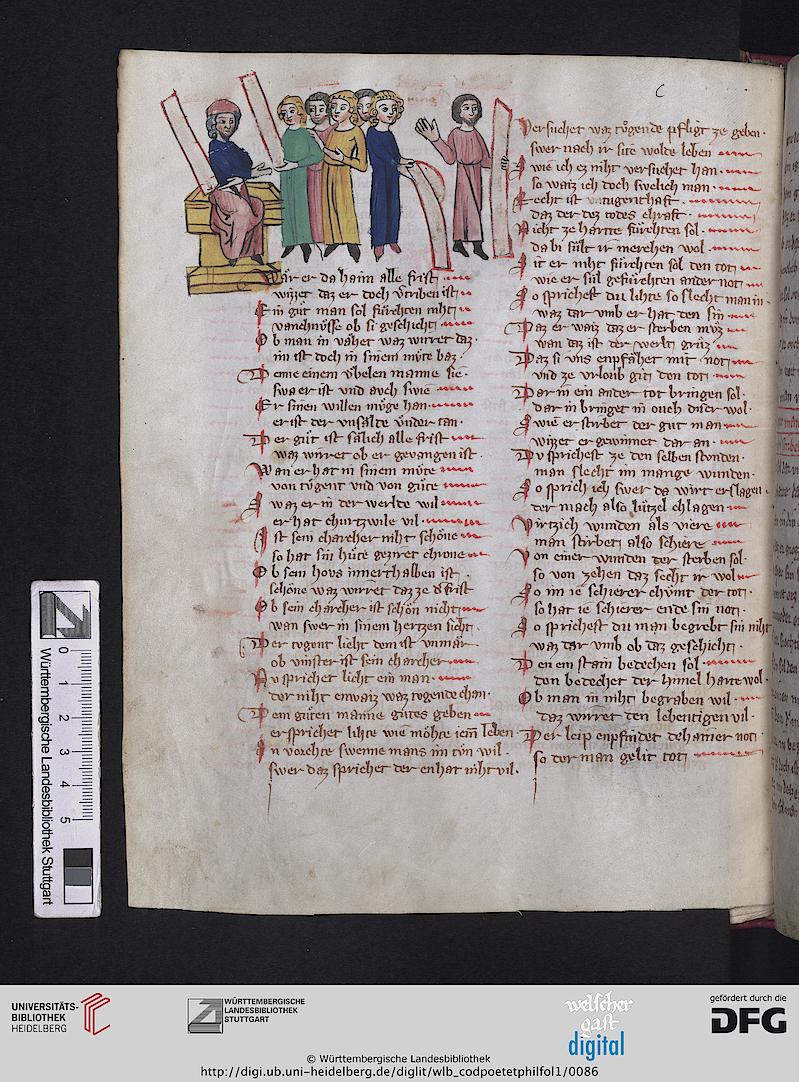 C
Wär er da haim alle frist
wizzet daz er doch vertriben ist
Ein güt man sol fürchten niht
vanchnüsse ob si geschicht
Ob man in vahet waz wirret daz
im ist doch in sinem müte baz
Denne einem übelen manne sie
swa er ist vnd auch swie
Er sinen willen müge han
er ist der vnsälde vnder tan
Der güt ist sälich alle frist
waz wirret ob er gevangen ist
Wan er hat in sinem müte
von tugent vnd von güte
Swaz er in der werlde wil
er hat churtzwile vil
Ist sein charcher niht schöne
so hat sin hüte gezieret chrone
Ob sein hovs innerthalben ist
schöne waz wirret daz ze der frist
Ob sein charcher ist schön nicht
wan swer in sinem hertzen sicht
Der togent licht dem ist vnmär
ob vinster ist sein charcher
Nu sprichet licht ein man
der niht enwaiz waz togende chan
Dem güten manne gütes geben
er sprichet lihte wie möhte iem leben
An vorchte swenne mans im tün wil
swer daz sprichet der enhat niht vil
Versuchet waz tögende pfligt ze geben
swer nach ir site wolde leben
Swie ich ez niht versuchet han
so waiz ich doch swelich man
Recht ist
daz der dez todes chraft
Niht ze harte fürchten sol
da bi sült ir merchen wol
Sit er niht fürchten sol den tot
wie er sül gefürchten ander not
So sprichest du lihte so slecht man in
waz dar umb er hat den sin
Daz er waiz daz er sterben müz
wan daz ist der werlt grüz
Daz si uns enpfahet mit not
vnd ze vrloub git den tot
Dar in ein ander tot bringen sol
dar in bringet in ouch diser wol
Swie er stirbet der güt man
wizzet er gewinnet dar an
Du sprichest ze den selben stunden
man slecht im mange wunden
So sprich ich swer da wirt erslagen
der mach also lützel chlagen
Virtzich wunden als viere
man stirbet also schiere
Von einer wunden der sterben sol
so von zehen daz secht ir wol
So im ie schierer chümt der tot
so hat ie schierer ende sin not
So sprichest du man begrabt sin niht
waz dar umb ob daz geschicht
Den ein stain bedechen sol
den bedechet der himel harte wol
Ob man in niht begraben wil
daz wirret den lebentigen vil
Der leip enpfindet dehainer not
so der man gelit tot
Württembergische Landesbibliothek Stuttgart
0 1 2 3 4 5
UNIVERSITÄTS-
BIBLIOTHEK
HEIDELBERG
WÜRTTEMBERGISCHE
LANDESBIBLIOTHEK
STUTTGART
welscher
gast
digital
gefördert durch die
DFG
© Württembergische Landesbibliothek
http://digi.ub.uni-heidelberg.de/diglit/wlb_codpoetetphilfol1/0086